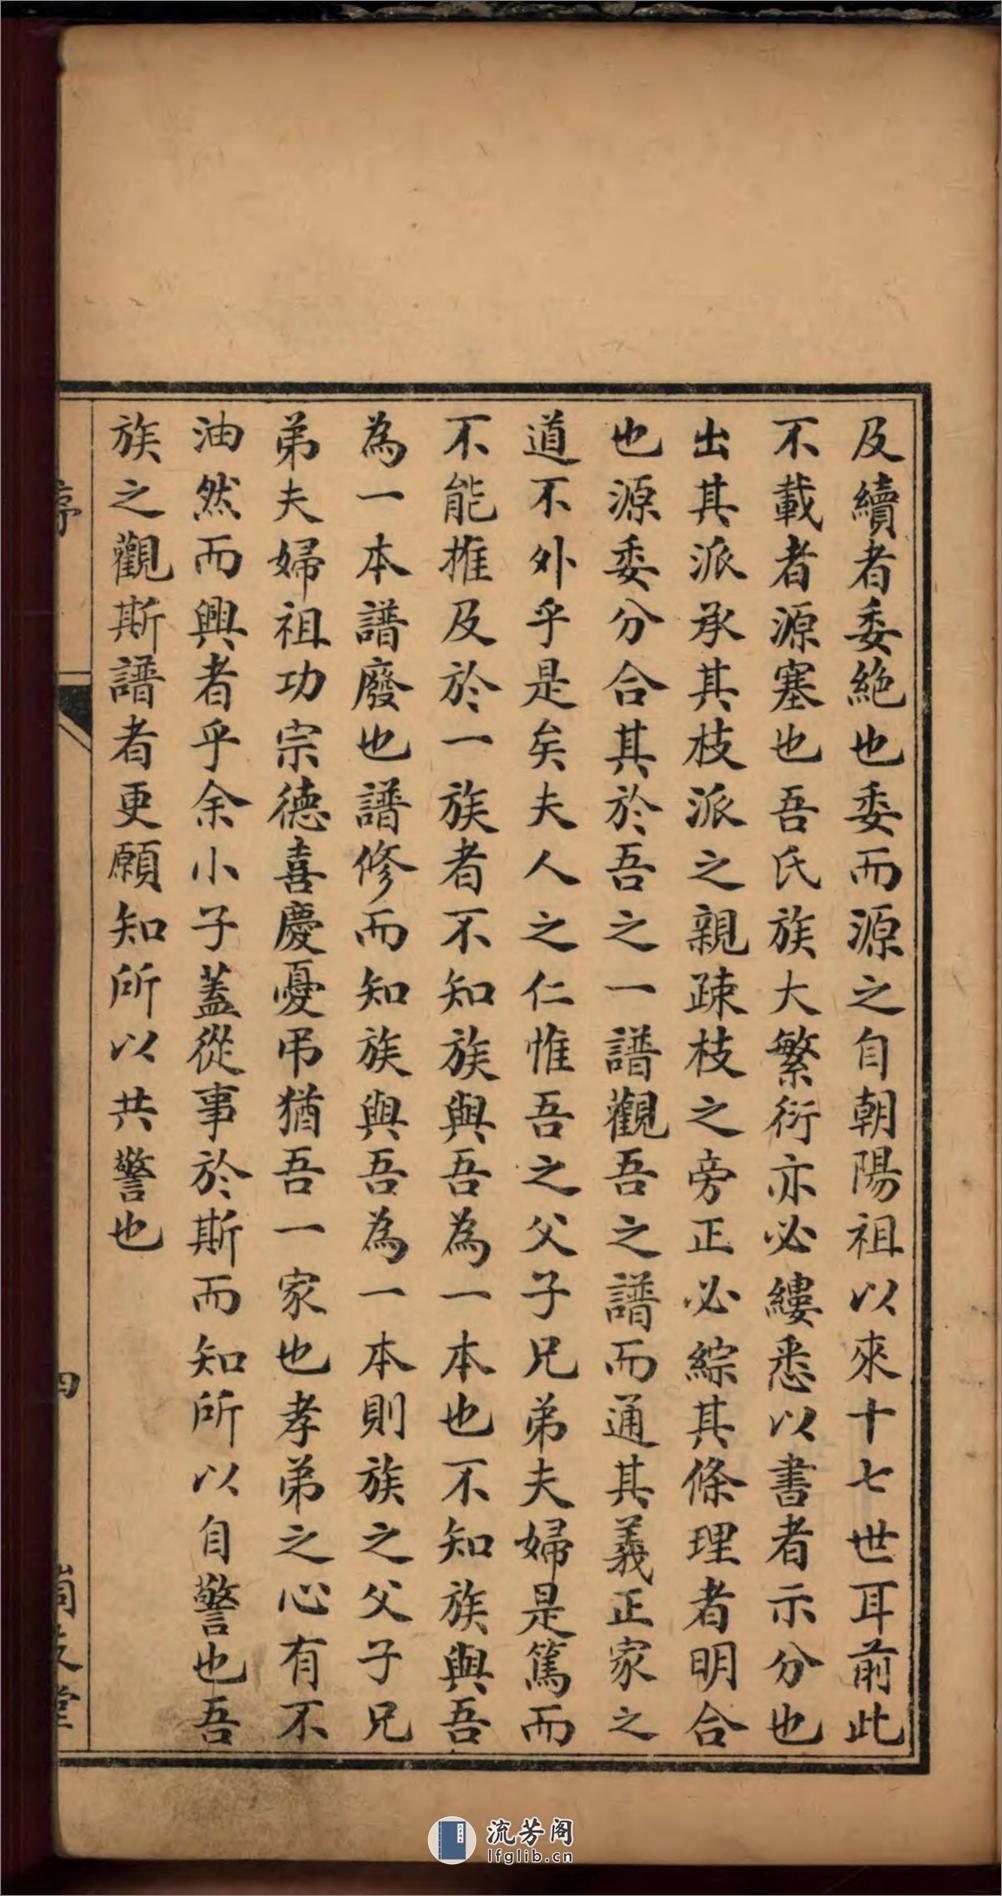 及續者委絶也委而源之自朝陽祖以來十七世耳前此
不載者源塞也吾氏族大繁衍亦必縷悉以書者示分也
出其派承其枝派之親疎枝之旁正必綜其條理者明合
也源委分合其於吾之一譜觀吾之譜而通其義正家之
道不外乎是矣夫人之仁惟吾之父子兄弟夫婦是篤而
不能推及於一族者不知族與吾為一本也不知族與吾
為一本譜廢也譜修而知族與吾為一本則族之父子兄
弟夫婦祖功宗德喜慶憂弔猶吾一家也孝弟之心有不
油然而興者乎余小子蓋從事於斯而知所以自警也吾
族之觀斯譜者更願知所以共警也
序
四
流芳阁
lfglib.cn